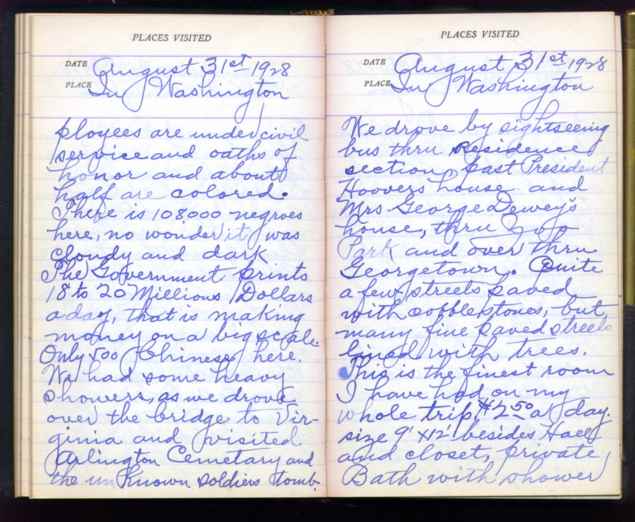 PLACES VISITED
DATE August 31st 1928
PLACE In Washington
ployees are under civil
service and oaths of
honor and about
half are colored.
There is 108000 negroes
here, no wonder it was
cloudy and dark
The Government prints
18 to 20 Millions Dollars
a day, that is making
money on a big scale
Only 500 Chinese here.
We had some heavy
showers, as we drove
over the bridge to Vir-
ginia and visited
Arlington Cemetary and
the unknown soldiers tomb.
PLACES VISITED
DATE August 31st 1928
PLACE In Washington
We drove by sightseeing
bus thru Residence
section past President
Hoovers house and
Mrs George Dewey's
house, thru Zoo
Park and over thru
Georgetown. Quite
a few streets paved
with cobblestones, but
many fine paved streets
lined with trees.
This is the finest room
I have had on my
whole trip, $2.50 a day.
size 9' x 12' besides Hall
and closet, private
Bath with shower